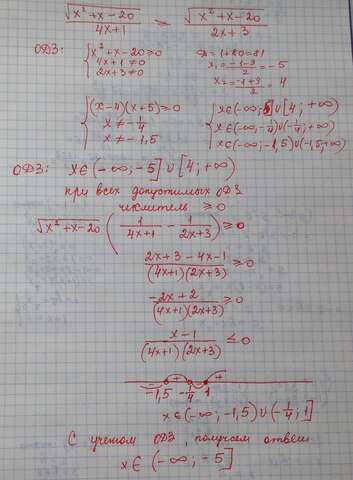 √(x² + x - 20) / (4x+1) ≥ √(x² + x - 20) / (2x+3)
ОДЗ: { x² + x - 20 ≥ 0   D = 1 + 80 = 81
4x + 1 ≠ 0   x₁ = (-1-9)/2 = -5
2x + 3 ≠ 0   x₂ = (-1+9)/2 = 4
{ (x-4)(x+5) ≥ 0   { x ∈ (-∞; 5] ∪ [4; +∞)
x ≠ -1/4   x ∈ (-∞; -1/4) ∪ (-1/4; +∞)
x ≠ -1,5   x ∈ (-∞; -1,5) ∪ (-1,5; +∞)
ОДЗ: x ∈ (-∞; -5] ∪ [4; +∞)
при всех допустимых ОДЗ
числитель ≥ 0
√(x² + x - 20) (1/(4x+1) - 1/(2x+3)) ≥ 0
(2x + 3 - 4x - 1) / ((4x+1)(2x+3)) ≥ 0
(-2x + 2) / ((4x+1)(2x+3)) ≥ 0
(x - 1) / ((4x+1)(2x+3)) ≤ 0
- + - +
-1,5 -1/4 1
x ∈ (-∞; -1,5) ∪ (-1/4; 1]
С учетом ОДЗ, получаем ответ
x ∈ (-∞; -5]